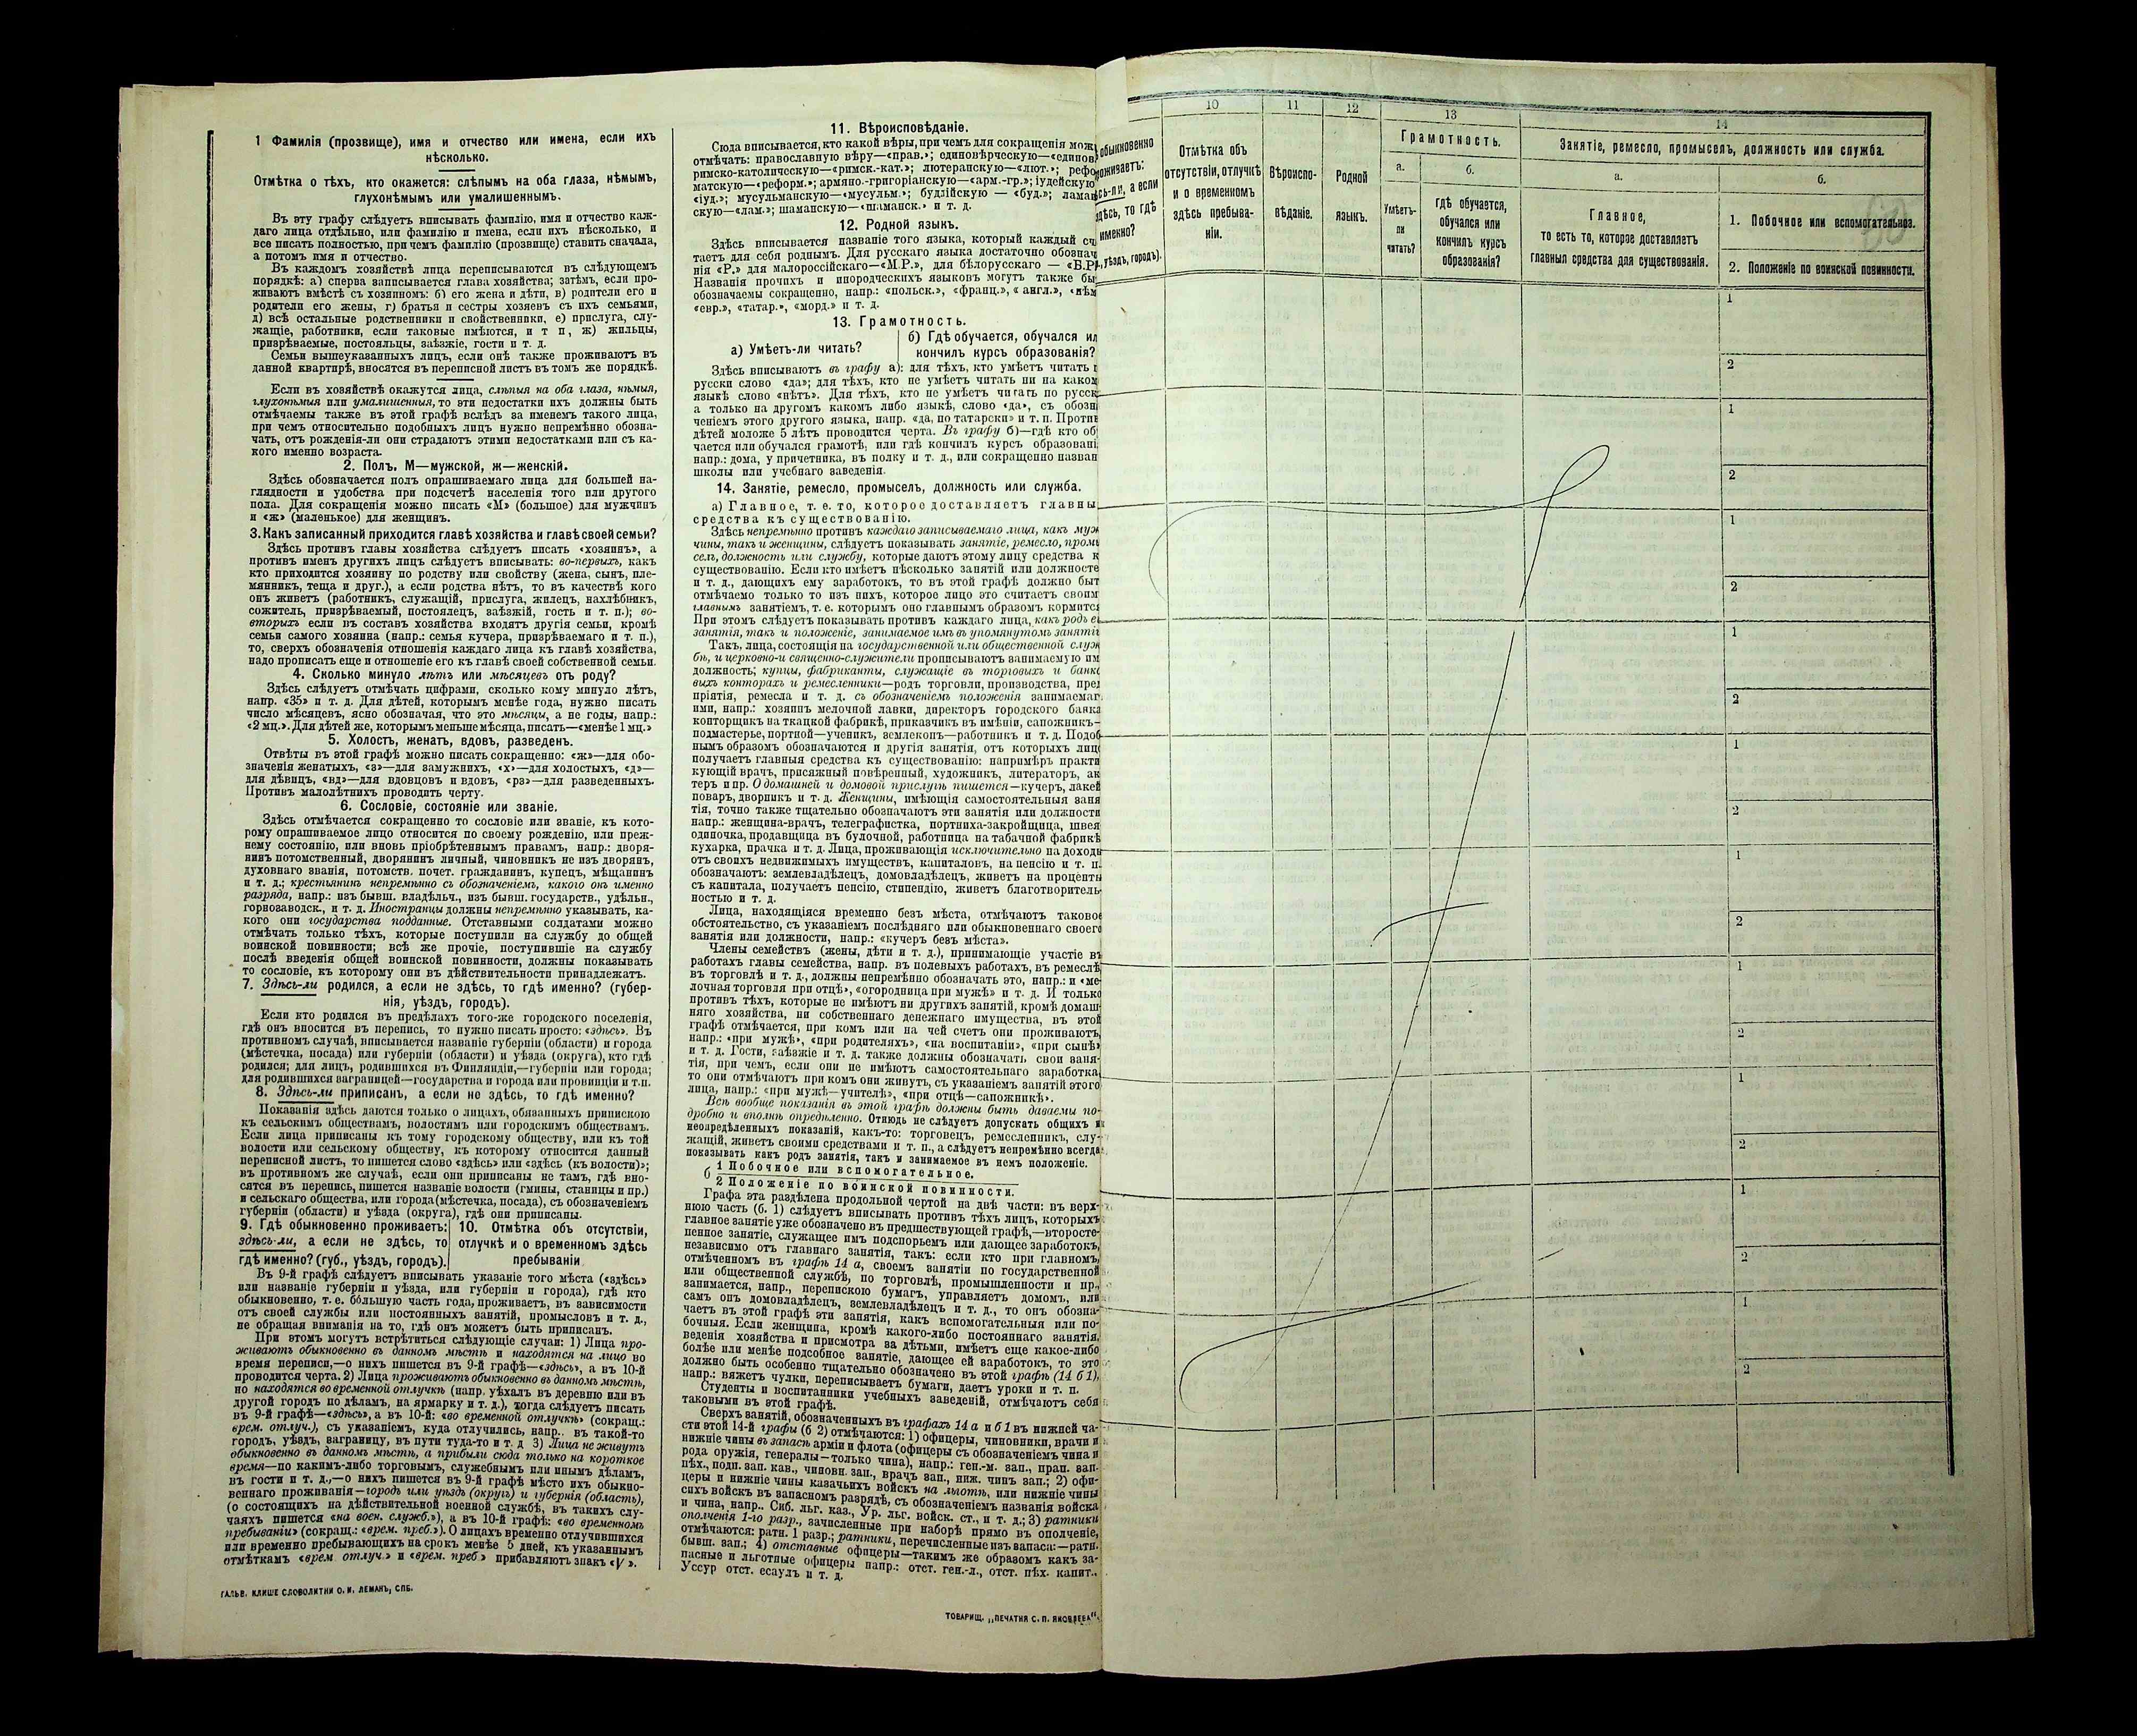 1 Фамилія (прозвище), имя и отчество или имена, если ихъ
нѣсколько.
Отмѣтка о тѣхъ, кто окажется: слѣпымъ на оба глаза, нѣмымъ,
глухонѣмымъ или умалишеннымъ.
Въ эту графу слѣдуетъ вписывать фамилію, имя и отчество каж-
даго лица отдѣльно, или фамилію и имена, если ихъ нѣсколько, и
все писать полностью, при чемъ фамилію (прозвище) ставить сначала,
а потомъ имя и отчество.
Въ каждомъ хозяйствѣ лица переписываются въ слѣдующемъ
порядкѣ: а) сперва записывается глава хозяйства; затѣмъ, если про-
живаютъ вмѣстѣ съ хозяиномъ: б) его жена и дѣти, в) родители его и
родители его жены, г) братья и сестры хозяевъ съ ихъ семьями,
д) всѣ остальные родственники и свойственники, е) прислуга, слу-
жащіе, работники, если таковые имѣются, и т п, ж) жильцы,
призрѣваемые, постояльцы, заѣзжіе, гости и т. д.
Семьи вышеуказанныхъ лицъ, если онѣ также проживаютъ въ
данной квартирѣ, вносятся въ переписной листъ въ томъ же порядкѣ.
Если въ хозяйствѣ окажутся лица, слѣпыя на оба глаза, нѣмыя,
глухонѣмыя или умалишенныя, то эти недостатки ихъ должны быть
отмѣчаемы также въ этой графѣ вслѣдъ за именемъ такого лица,
при чемъ относительно подобныхъ лицъ нужно непремѣнно обозна-
чать, отъ рожденія-ли они страдаютъ этими недостатками или съ ка-
кого именно возраста.
2. Полъ. М—мужской, ж—женскій.
Здѣсь обозначается полъ опрашиваемаго лица для большей на-
глядности и удобства при подсчетѣ населенія того или другого
пола. Для сокращенія можно писать «М» (большое) для мужчинъ
и «ж» (маленькое) для женщинъ.
3. Какъ записанный приходится главѣ хозяйства и главѣ своей семьи?
Здѣсь противъ главы хозяйства слѣдуетъ писать «хозяинъ», а
противъ именъ другихъ лицъ слѣдуетъ вписывать: во-первыхъ, какъ
кто приходится хозяину по родству или свойству (жена, сынъ, пле-
мянникъ, теща и друг.), а если родства нѣтъ, то въ качествѣ кого
онъ живетъ (работникъ, служащій, прислуга, жилецъ, нахлѣбникъ,
сожитель, призрѣваемый, постоялецъ, заѣзжій, гость и т. п.); во-
вторыхъ если въ составъ хозяйства входятъ другія семьи, кромѣ
семьи самого хозяина (напр.: семья кучера, призрѣваемаго и т. п.),
то, сверхъ обозначенія отношенія каждаго лица къ главѣ хозяйства,
надо прописать еще и отношеніе его къ главѣ своей собственной семьи.
4. Сколько минуло лѣтъ или мѣсяцевъ отъ роду?
Здѣсь слѣдуетъ отмѣчать цифрами, сколько кому минуло лѣтъ,
напр. «35» и т. д. Для дѣтей, которымъ менѣе года, нужно писать
число мѣсяцевъ, ясно обозначая, что это мѣсяцы, а не годы, напр.:
«2 мц.». Для дѣтей же, которымъ меньше мѣсяца, писать—«менѣе 1 мц.»
5. Холостъ, женатъ, вдовъ, разведенъ.
Отвѣты въ этой графѣ можно писать сокращенно: «ж»—для обо-
значенія женатыхъ, «з»—для замужнихъ, «х»—для холостыхъ, «д»—
для дѣвицъ, «вд»—для вдовцовъ и вдовъ, «рз»—для разведенныхъ.
Противъ малолѣтнихъ проводить черту.
6. Сословіе, состояніе или званіе.
Здѣсь отмѣчается сокращенно то сословіе или званіе, къ кото-
рому опрашиваемое лицо относится по своему рожденію, или преж-
нему состоянію, или вновь пріобрѣтеннымъ правамъ, напр.: дворя-
нинъ потомственный, дворянинъ личный, чиновникъ не изъ дворянъ,
духовнаго званія, потомств. почет. гражданинъ, купецъ, мѣщанинъ
и т. д.; крестьянинъ непремѣнно съ обозначеніемъ, какого онъ именно
разряда, напр.: изъ бывш. владѣльч., изъ бывш. государств., удѣльн.,
горнозаводск., и т. д. Иностранцы должны непремѣнно указывать, ка-
кого они государства подданные. Отставными солдатами можно
отмѣчать только тѣхъ, которые поступили на службу до общей
воинской повинности; всѣ же прочіе, поступившіе на службу
послѣ введенія общей воинской повинности, должны показывать
то сословіе, къ которому они въ дѣйствительности принадлежатъ.
7. Здѣсь-ли родился, а если не здѣсь, то гдѣ именно? (губер-
нія, уѣздъ, городъ).
Если кто родился въ предѣлахъ того-же городского поселенія,
гдѣ онъ вносится въ перепись, то нужно писать просто: «здѣсь». Въ
противномъ случаѣ, вписывается названіе губерніи (области) и города
(мѣстечка, посада) или губерніи (области) и уѣзда (округа), кто гдѣ
родился; для лицъ, родившихся въ Финляндіи,—губерніи или города;
для родившихся заграницей—государства и города или провинціи и т.п.
8. Здѣсь-ли приписанъ, а если не здѣсь, то гдѣ именно?
Показанія здѣсь даются только о лицахъ, обязанныхъ припискою
къ сельскимъ обществамъ, волостямъ или городскимъ обществамъ.
Если лица приписаны къ тому городскому обществу, или къ той
волости или сельскому обществу, къ которому относится данный
переписной листъ, то пишется слово «здѣсь» или «здѣсь (къ волости)»;
въ противномъ же случаѣ, если они приписаны не тамъ, гдѣ вно-
сятся въ перепись, пишется названіе волости (гмины, станицы и пр.)
и сельскаго общества, или города (мѣстечка, посада), съ обозначеніемъ
губерніи (области) и уѣзда (округа), гдѣ они приписаны.
9. Гдѣ обыкновенно проживаетъ:
здѣсь-ли, а если не здѣсь, то
гдѣ именно? (губ., уѣздъ, городъ).
10. Отмѣтка объ отсутствіи,
отлучкѣ и о временномъ здѣсь
пребываніи
Въ 9-й графѣ слѣдуетъ вписывать указаніе того мѣста («здѣсь»
или названіе губерніи и уѣзда, или губерніи и города), гдѣ кто
обыкновенно, т. е. бо́льшую часть года, проживаетъ, въ зависимости
отъ своей службы или постоянныхъ занятій, промысловъ и т. д.,
не обращая вниманія на то, гдѣ онъ можетъ быть приписанъ.
При этомъ могутъ встрѣтиться слѣдующіе случаи: 1) Лица про-
живаютъ обыкновенно въ данномъ мѣстѣ и находятся на лицо во
время переписи,—о нихъ пишется въ 9-й графѣ—«здѣсь», а въ 10-й
проводится черта. 2) Лица проживаютъ обыкновенно въ данномъ мѣстѣ,
но находятся во временной отлучкѣ (напр. уѣхалъ въ деревню или въ
другой городъ по дѣламъ, на ярмарку и т. д.), тогда слѣдуетъ писать
въ 9-й графѣ—«здѣсь», а въ 10-й: «во временной отлучкѣ» (сокращ.:
врем. отлуч.), съ указаніемъ, куда отлучились, напр.. въ такой-то
городъ, уѣздъ, заграницу, въ пути туда-то и т. д 3) Лица не живутъ
обыкновенно въ данномъ мѣстѣ, а прибыли сюда только на короткое
время—по какимъ-либо торговымъ, служебнымъ или инымъ дѣламъ,
въ гости и т. д.,—о нихъ пишется въ 9-й графѣ мѣсто ихъ обыкно-
веннаго проживанія—городъ или уѣздъ (округъ) и губернія (область),
(о состоящихъ на дѣйствительной военной службѣ, въ такихъ слу-
чаяхъ пишется «на воен. служб.»), а въ 10-й графѣ: «во временномъ
пребываніи» (сокращ.: «врем. преб.»). О лицахъ временно отлучившихся
или временно пребывающихъ на срокъ менѣе 5 дней, къ указаннымъ
отмѣткамъ «врем. отлуч.» и «врем. преб.» прибавляютъ знакъ «V».
ГАЛЬВ. КЛИШЕ СЛОВОЛИТНИ О. И. ЛЕМАНЪ, СПБ.
11. Вѣроисповѣданіе.
Сюда вписывается, кто какой вѣры, при чемъ для сокращенія мож
отмѣчать: православную вѣру—«прав.»; единовѣрческую—«единов
римско-католическую—«римск.-кат.»; лютеранскую—«лют.»; рефо
матскую—«реформ.»; армяно.-григоріанскую—«арм.-гр.»; іудейскую
«іуд.»; мусульманскую—«мусульм.»; буддійскую — «буд.»; ламаи
скую—«лам.»; шаманскую—«шаманск.» и т. д.
12. Родной языкъ.
Здѣсь вписывается названіе того языка, который каждый сч
таетъ для себя роднымъ. Для русскаго языка достаточно обознач
нія «Р.» для малороссійскаго—«М.Р.», для бѣлорусскаго — «Б.Р
Названія прочихъ и инородческихъ языковъ могутъ также бы
обозначаемы сокращенно, напр.: «польск.», «франц.», « англ.», «нѣм
«евр.», «татар.», «морд.» и т. д.
13. Грамотность.
а) Умѣетъ-ли читать?
б) Гдѣ обучается, обучался ил
кончилъ курсъ образованія?
Здѣсь вписываютъ въ графу а): для тѣхъ, кто умѣетъ читать п
русски слово «да»; для тѣхъ, кто не умѣетъ читать ни на каком
языкѣ слово «нѣтъ». Для тѣхъ, кто не умѣетъ читать по русск
а только на другомъ какомъ либо языкѣ, слово «да», съ обозн
ченіемъ этого другого языка, напр. «да, по татарски» и т. п. Против
дѣтей моложе 5 лѣтъ проводится черта. Въ графу б)—гдѣ кто об
чается или обучался грамотѣ, или гдѣ кончилъ курсъ образовані
напр.: дома, у причетника, въ полку и т. д., или сокращенно назван
школы или учебнаго заведенія.
14. Занятіе, ремесло, промыселъ, должность или служба.
а) Главное, т. е. то, которое доставляетъ главны
средства къ существованію.
Здѣсь непремѣнно противъ каждаго записываемаго лица, какъ муж
чины, такъ и женщины, слѣдуетъ показывать занятіе, ремесло, промы
селъ, должность или службу, которые даютъ этому лицу средства к
существованію. Если кто имѣетъ нѣсколько занятій или должносте
и т. д., дающихъ ему заработокъ, то въ этой графѣ должно быт
отмѣчаемо только то изъ нихъ, которое лицо это считаетъ своим
главнымъ занятіемъ, т. е. которымъ оно главнымъ образомъ кормится
При этомъ слѣдуетъ показывать противъ каждаго лица, какъ родъ е
занятія, такъ и положеніе, занимаемое имъ въ упомянутомъ занятіи
Такъ, лица, состоящія на государственной или общественной служ
бѣ, и церковно-и священно-служители прописываютъ занимаемую им
должность; купцы, фабриканты, служащіе въ торговыхъ и банко
выхъ конторахъ и ремесленники—родъ торговли, производства, пред
пріятія, ремесла и т. д. съ обозначеніемъ положенія занимаемаг
ими, напр.: хозяинъ мелочной лавки, директоръ городского банка
конторщикъ на ткацкой фабрикѣ, приказчикъ въ имѣніи, сапожникъ-
подмастерье, портной—ученикъ, землекопъ—работникъ и т. д. Подоб
нымъ образомъ обозначаются и другія занятія, отъ которыхъ лиц
получаетъ главныя средства къ существованію: напримѣръ практи
кующій врачъ, присяжный повѣренный, художникъ, литераторъ, ак
теръ и пр. О домашней и домовой прислугѣ пишется—кучеръ, лакей
поваръ, дворникъ и т. д. Женщины, имѣющія самостоятельныя заня
тія, точно также тщательно обозначаютъ эти занятія или должности
напр.: женщина-врачъ, телеграфистка, портниха-закройщица, швея
одиночка, продавщица въ булочной, работница на табачной фабрикѣ
кухарка, прачка и т. д. Лица, проживающія исключительно на доходы
отъ своихъ недвижимыхъ имуществъ, капиталовъ, на пенсію и т. п.
обозначаютъ: землевладѣлецъ, домовладѣлецъ, живетъ на проценты
съ капитала, получаетъ пенсію, стипендію, живетъ благотворитель-
ностью и т. д.
Лица, находящіяся временно безъ мѣста, отмѣчаютъ таковое
обстоятельство, съ указаніемъ послѣдняго или обыкновеннаго своего
занятія или должности, напр.: «кучеръ безъ мѣста».
Члены семействъ (жены, дѣти и т. д.), принимающіе участіе въ
работахъ главы семейства, напр. въ полевыхъ работахъ, въ ремеслѣ
въ торговлѣ и т. д., должны непремѣнно обозначать это, напр.: и «ме
лочная торговля при отцѣ», «огородница при мужѣ» и т. д. И только
противъ тѣхъ, которые не имѣютъ ни другихъ занятій, кромѣ домаш
няго хозяйства, ни собственнаго денежнаго имущества, въ этой
графѣ отмѣчается, при комъ или на чей счетъ они проживаютъ,
напр.: «при мужѣ», «при родителяхъ», «на воспитаніи», «при сынѣ»
и т. д. Гости, заѣзжіе и т. д. также должны обозначать свои заня-
тія, при чемъ, если они не имѣютъ самостоятельнаго заработка
то они отмѣчаютъ при комъ они живутъ, съ указаніемъ занятій этого
лица, напр.: «при мужѣ—учителѣ», «при отцѣ—сапожникѣ».
Всѣ вообще показанія въ этой графѣ должны быть даваемы по-
дробно и вполнѣ опредѣленно. Отнюдь не слѣдуетъ допускать общихъ и
неопредѣленныхъ показаній, какъ-то: торговецъ, ремесленникъ, слу-
жащій, живетъ своими средствами и т. п., а слѣдуетъ непремѣнно всегда
показывать какъ родъ занятія, такъ и занимаемое въ немъ положеніе.
б 1 Побочное или вспомогательное.
2 Положеніе по воинской повинности.
Графа эта раздѣлена продольной чертой на двѣ части: въ верх-
нюю часть (б. 1) слѣдуетъ вписывать противъ тѣхъ лицъ, которыхъ
главное занятіе уже обозначено въ предшествующей графѣ,—второсте-
пенное занятіе, служащее имъ подспорьемъ или дающее заработокъ,
независимо отъ главнаго занятія, такъ: если кто при главномъ,
отмѣченномъ въ графѣ 14 а, своемъ занятіи по государственной
или общественной службѣ, по торговлѣ, промышленности и пр.,
занимается, напр., перепискою бумагъ, управляетъ домомъ, или
самъ онъ домовладѣлецъ, землевладѣлецъ и т. д., то онъ обозна-
чаетъ въ этой графѣ эти занятія, какъ вспомогательныя или по-
бочныя. Если женщина, кромѣ какого-либо постояннаго занятія,
веденія хозяйства и присмотра за дѣтьми, имѣетъ еще какое-либо
болѣе или менѣе подсобное занятіе, дающее ей заработокъ, то это
должно быть особенно тщательно обозначено въ этой графѣ (14 б 1),
напр.: вяжетъ чулки, переписываетъ бумаги, даетъ уроки и т. п.
Студенты и воспитанники учебныхъ заведеній, отмѣчаютъ себя
таковыми въ этой графѣ.
Сверхъ занятій, обозначенныхъ въ графахъ 14 а и б 1 въ нижней ча-
сти этой 14-й графы (б 2) отмѣчаются: 1) офицеры, чиновники, врачи и
нижніе чины въ запасѣ арміи и флота (офицеры съ обозначеніемъ чина и
рода оружія, генералы—только чина), напр.: ген.-м. зап., прап. зап.
пѣх., подп. зап. кав., чиновн. зап., врачъ зап., ниж. чинъ зап.; 2) офи-
церы и нижніе чины казачьихъ войскъ на льготѣ, или нижніе чины
сихъ войскъ въ запасномъ разрядѣ, съ обозначеніемъ названія войска
и чина, напр.. Сиб. льг. каз., Ур. льг. войск. ст., и т. д.; 3) ратники
ополченія 1-го разр., зачисленные при наборѣ прямо въ ополченіе,
отмѣчаются: ратн. 1 разр.; ратники, перечисленные изъ запаса:—ратн.
бывш. зап.; 4) отставные офицеры—такимъ же образомъ какъ за-
пасные и льготные офицеры напр.: отст. ген.-л., отст. пѣх. капит..
Уссур отст. есаулъ и т. д.
ТОВАРИЩ. „ПЕЧАТНЯ С. П. ЯКОВЛЕВА“.
обыкновенно
оживаетъ:
сь-ли, а если
здѣсь, то гдѣ
именно?
, уѣздъ, городъ).
10
Отмѣтка объ
отсутствіи, отлучкѣ
и о временномъ
здѣсь пребыва-
ніи.
11
Вѣроиспо-
вѣданіе.
12
Родной
языкъ.
13
Грамотность.
а.
Умѣетъ-
ли
читать?
б.
гдѣ обучается,
обучался или
кончилъ курсъ
образованія?
14
Занятіе, ремесло, промыселъ, должность или служба.
а.
Главное,
то есть то, которое доставляетъ
главныя средства для существованія.
б.
1. Побочное или вспомогательное.
2. Положеніе по воинской повинности.
1
2
1
2
1
2
1
2
1
2
1
2
1
2
1
2
1
2
1
2